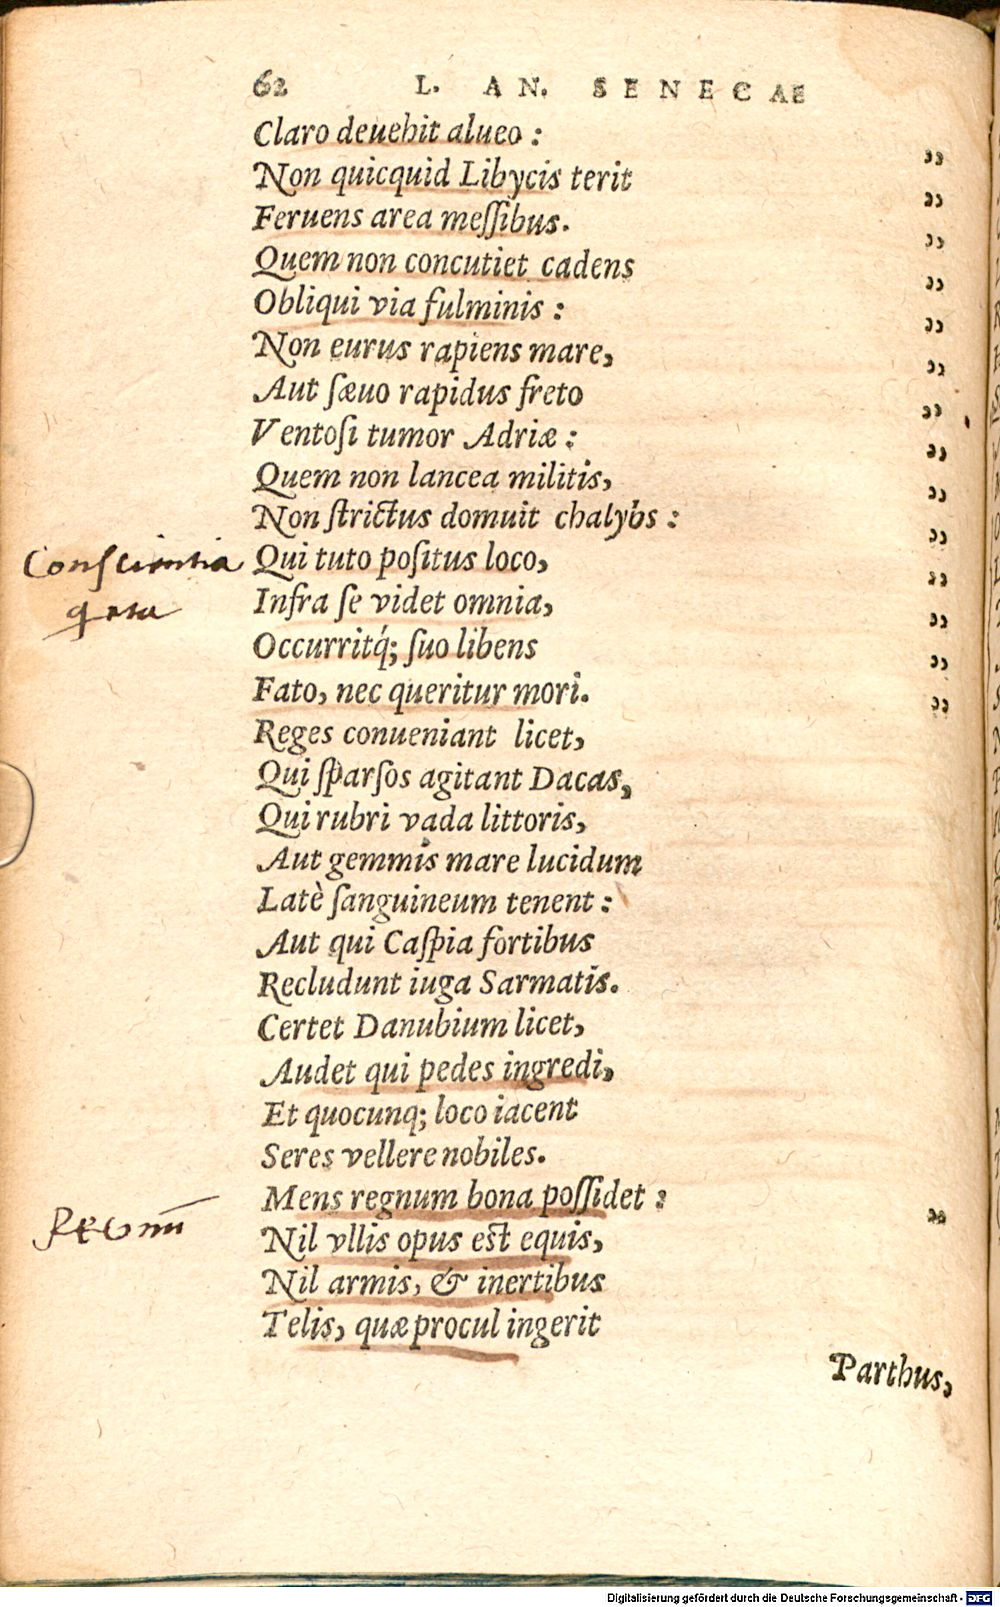 62 L. AN. SENECAE
Claro deuehit alueo :
Non quicquid Libycis terit
Feruens area meſſibus.
Quem non concutiet cadens
Obliqui via fulminis :
Non eurus rapiens mare,
Aut ſæuo rapidus freto
Ventoſi tumor Adriæ :
Quem non lancea militis,
Non ſtrictus domuit chalybs :
Conscientia
Qui tuto poſitus loco,
Infra ſe videt omnia,
Occurritq́; ſuo libens
Fato, nec queritur mori.
Reges conueniant licet,
Qui ſparſos agitant Dacas,
Qui rubri vada littoris,
Aut gemmis mare lucidum
Latè ſanguineum tenent :
Aut qui Caſpia fortibus
Recludunt iuga Sarmatis.
Certet Danubium licet,
Audet qui pedes ingredi,
Et quocunq; loco iacent
Seres vellere nobiles.
Mens regnum bona poſſidet :
Nil vllis opus eſt equis,
Nil armis, & inertibus
Telis, quæ procul ingerit
Parthus,
Digitalisierung gefördert durch die Deutsche Forschungsgemeinschaft - DFG